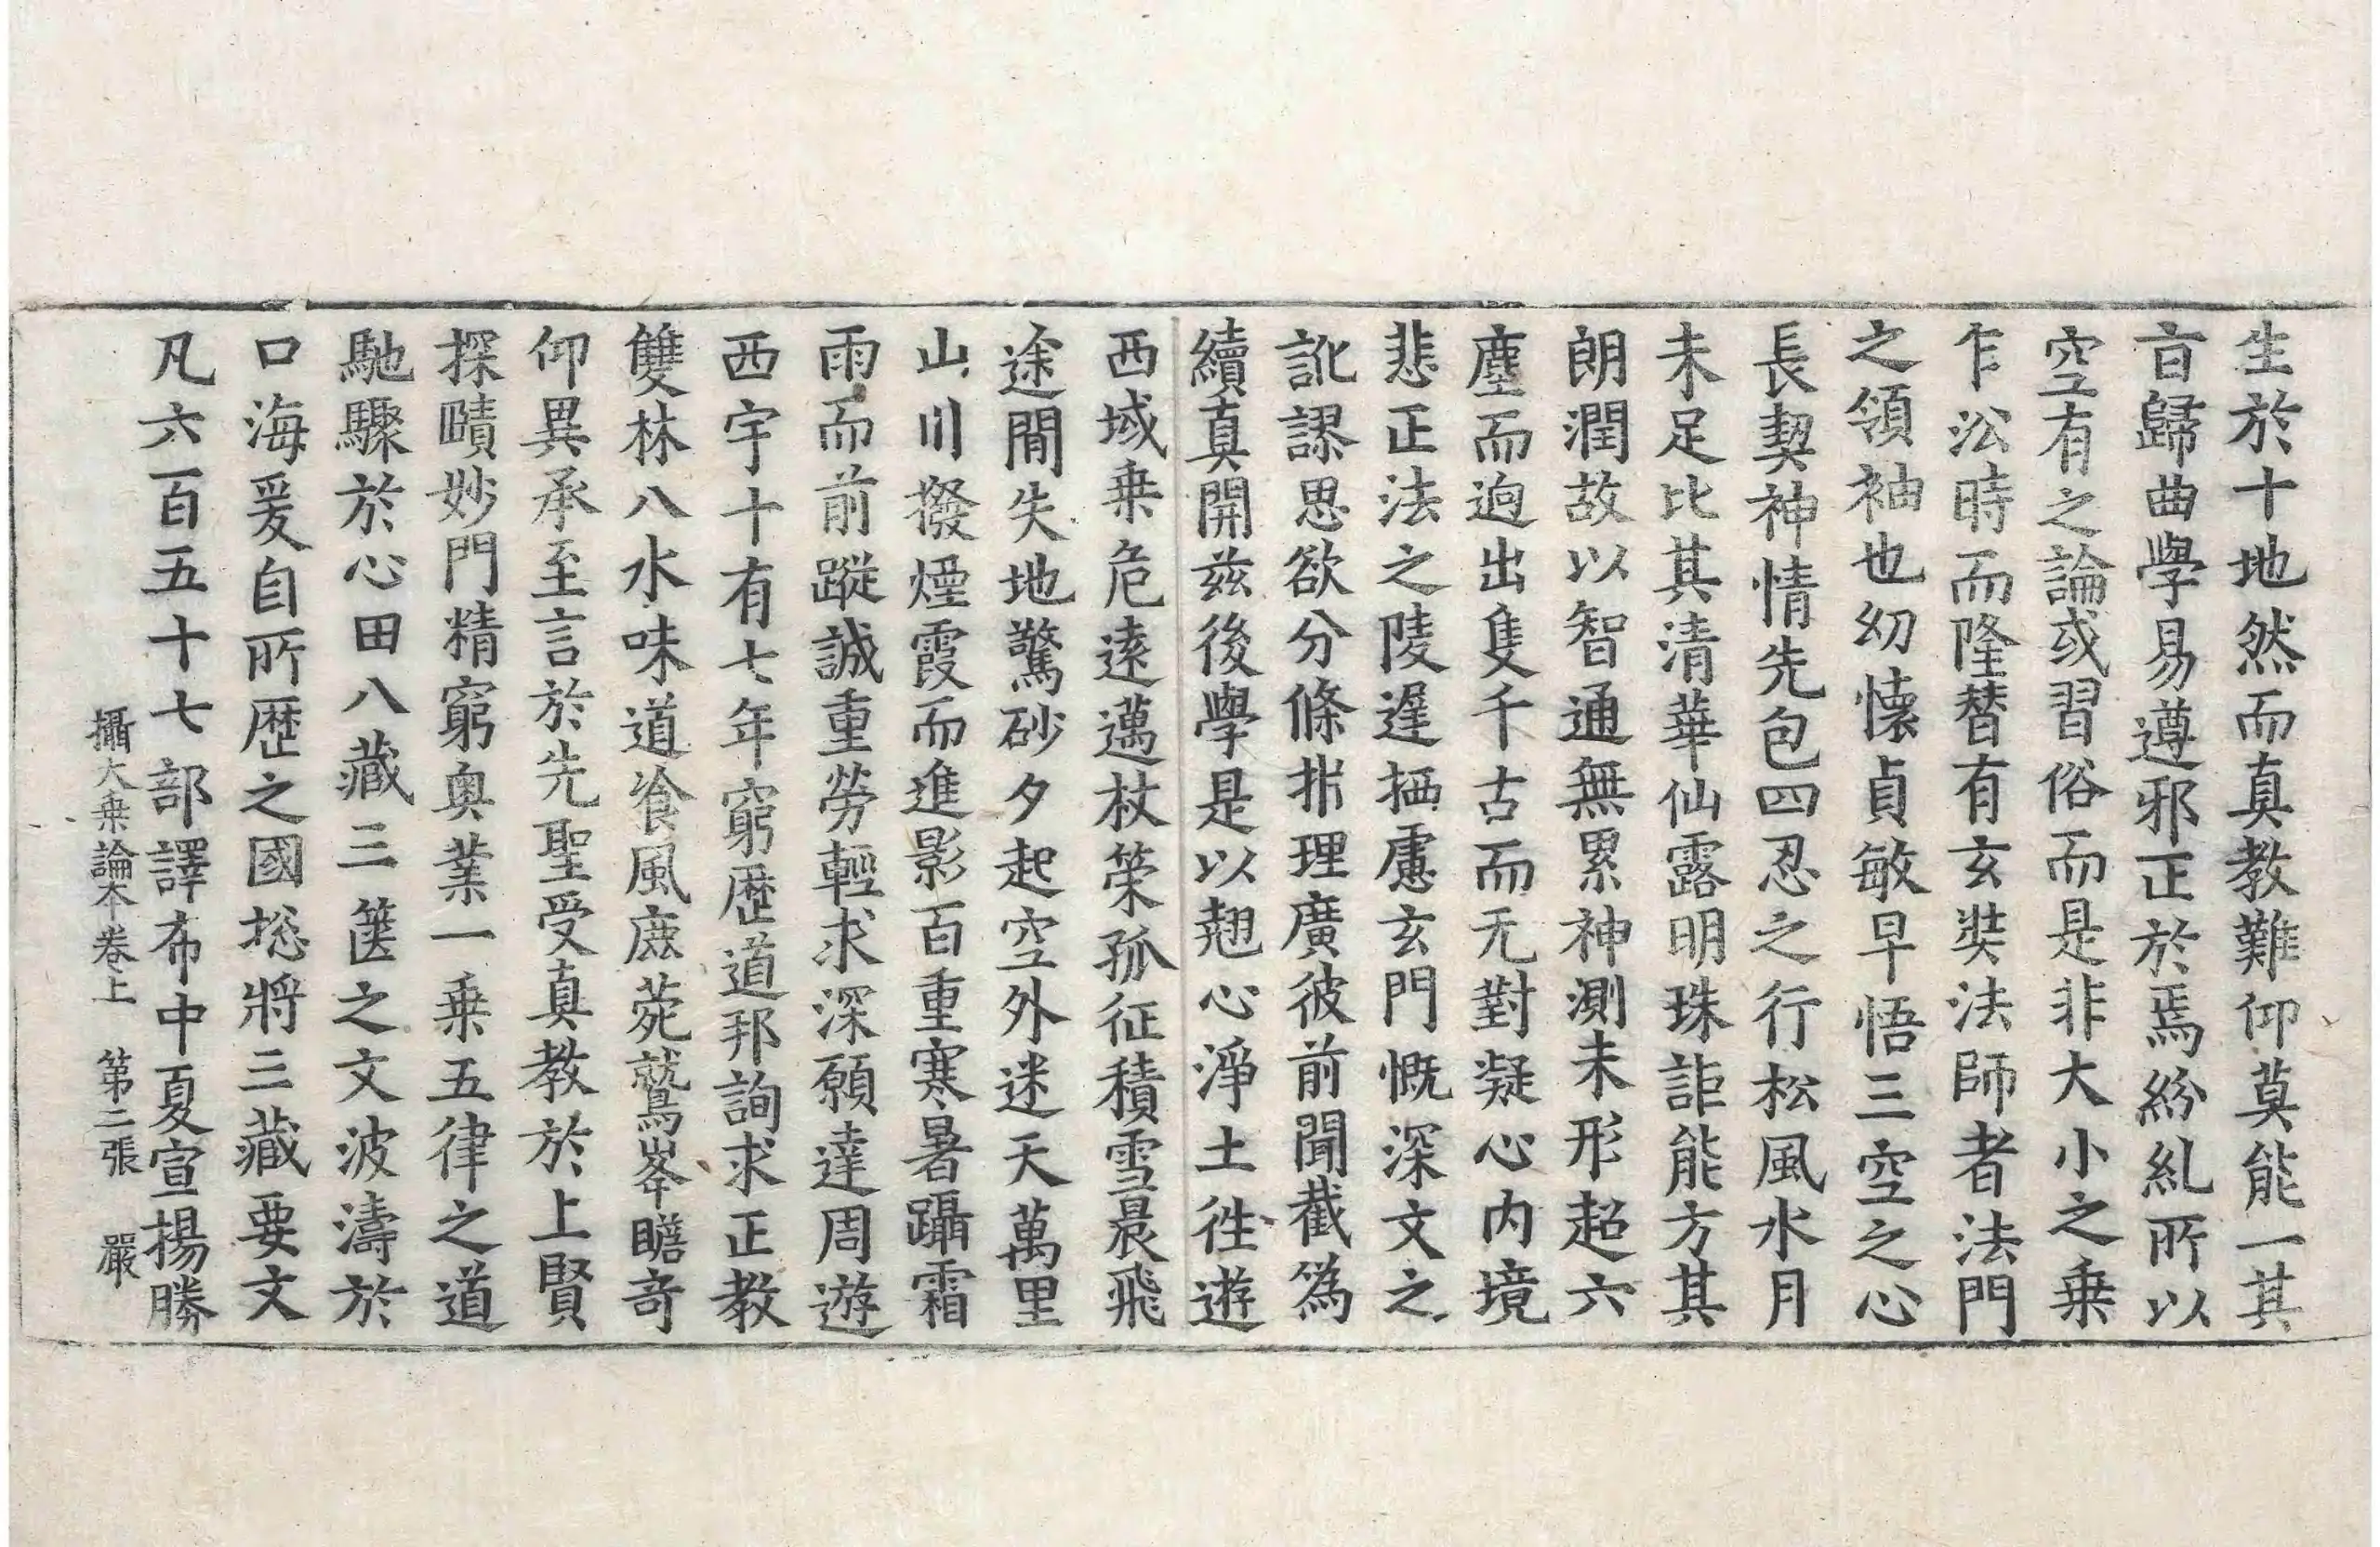 生於十地然而真教難仰莫能一其
㫖歸曲學易遵邪正於焉紛糺所以
空有之論或習俗而是非大小之乗
乍㳂時而隆替有玄奘法師者法門
之領袖也幼懷貞敏早悟三空之心
長契神情先包四忍之行松風水月
未足比其清華仙露明珠詎能方其
朗潤故以智通無累神測未形超六
塵而逈出隻千古而无對凝心内境
悲正法之陵遲栖慮玄門慨深文之
訛謬思欲分條㭊理廣彼前聞截僞
續真開兹後學是以翹心淨土徃遊
西域乗危逺邁杖䇿孤征積雪晨飛
途閒失地驚砂夕起空外迷天萬里
山川撥煙霞而進影百重寒暑躡霜
雨而前蹤誠重勞輕求深願達周遊
西宇十有七年窮歴道邦詢求正教
雙林八水味道飡風鹿菀鷲峯瞻竒
仰異承至言於先聖受真教於上賢
探賾妙門精窮奥業一乗五律之道
馳驟於心田八藏三篋之文波濤於
口海爰自所歴之國捴將三藏要文
凡六百五十七部譯布中夏宣揚勝
攝大乗論本卷上　第二張　嚴